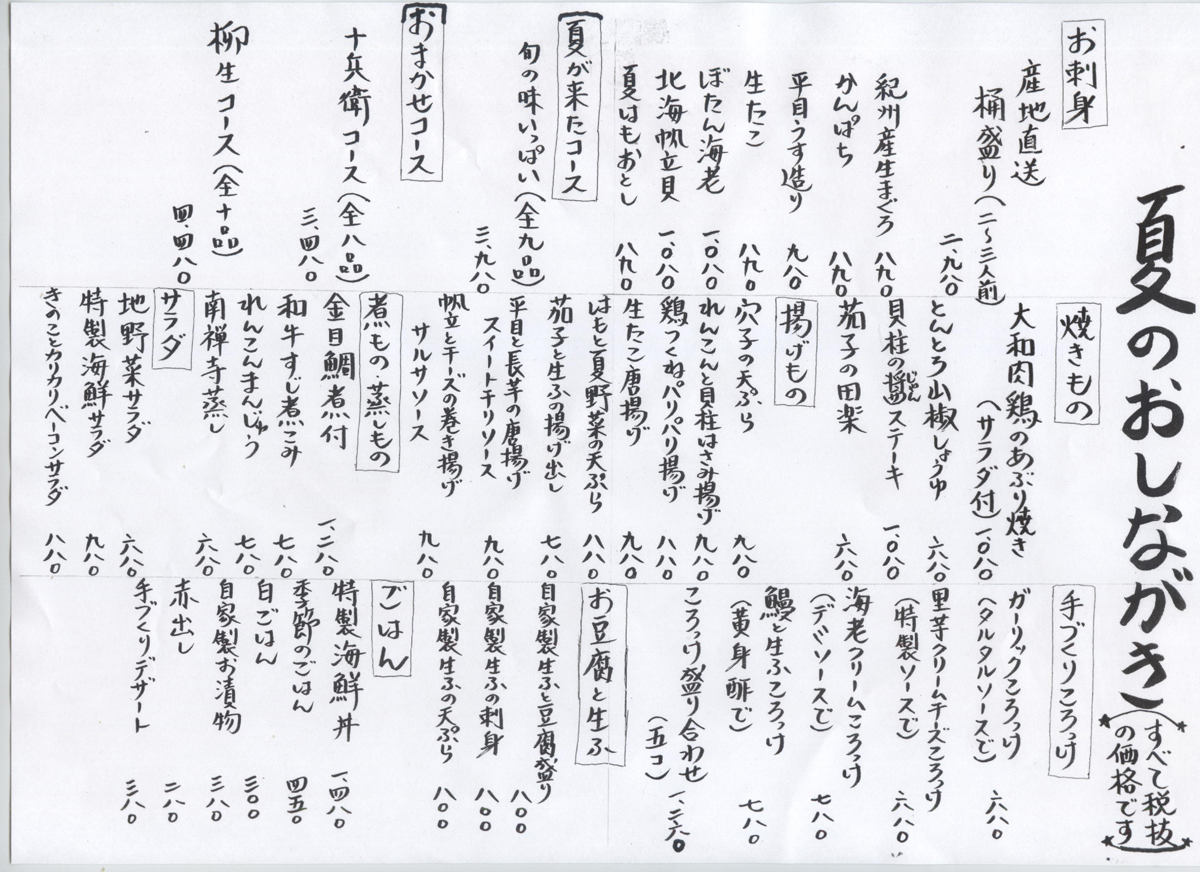 夏のおしながき
(すべて税抜
の価格です)
お刺身
産地直送
桶盛り(二〜三人前)
二、九八〇
紀州産生まぐろ 八九〇
かんぱち 八九〇
平目うす造り 九八〇
生たこ 八九〇
ぼたん海老 一、〇八〇
北海帆立貝 一、〇八〇
夏はもおとし 八九〇
夏が来たコース
旬の味いっぱい(全九品)
三、九八〇
おまかせコース
十兵衛コース(全八品)
三、四八〇
柳生コース(全十品)
四、四八〇
焼きもの
大和肉鶏のあぶり焼き
(サラダ付) 一、〇八〇
とんとろ山椒しょうゆ 六八〇
貝柱の醤じゃんステーキ 一、〇八〇
茄子の田楽 六八〇
揚げもの
穴子の天ぷら 九八〇
れんこんと貝柱はさみ揚げ 九八〇
鶏つくねパリパリ揚げ 八八〇
生たこ唐揚げ 九八〇
はもと夏野菜の天ぷら 八八〇
茄子と生ふの揚げ出し 七八〇
平目と長芋の唐揚げ
スイートチリソース 九八〇
帆立とチーズの巻き揚げ
サルサソース 九八〇
煮もの 蒸しもの
金目鯛煮付 一、二八〇
和牛すじ煮こみ 七八〇
れんこんまんじゅう 七八〇
南禅寺蒸し 六八〇
サラダ
地野菜サラダ 六八〇
特製海鮮サラダ 九八〇
きのことカリカリベーコンサラダ 八八〇
手づくりころっけ
ガーリックころっけ
(タルタルソースで) 六八〇
里芋クリームチーズころっけ
(特製ソースで) 六八〇
海老クリームころっけ
(デミソースで) 七八〇
鰻と生ふころっけ
(黄身酢で) 七八〇
ころっけ盛り合わせ
(五コ) 一、二六〇
お豆腐と生ふ
自家製生ふと豆腐盛り 八〇〇
自家製生ふの刺身 八〇〇
自家製生ふの天ぷら 八〇〇
ごはん
特製海鮮丼 一、四八〇
季節のごはん 四五〇
白ごはん 三〇〇
自家製お漬物 三八〇
赤出し 二八〇
手づくりデザート 三八〇